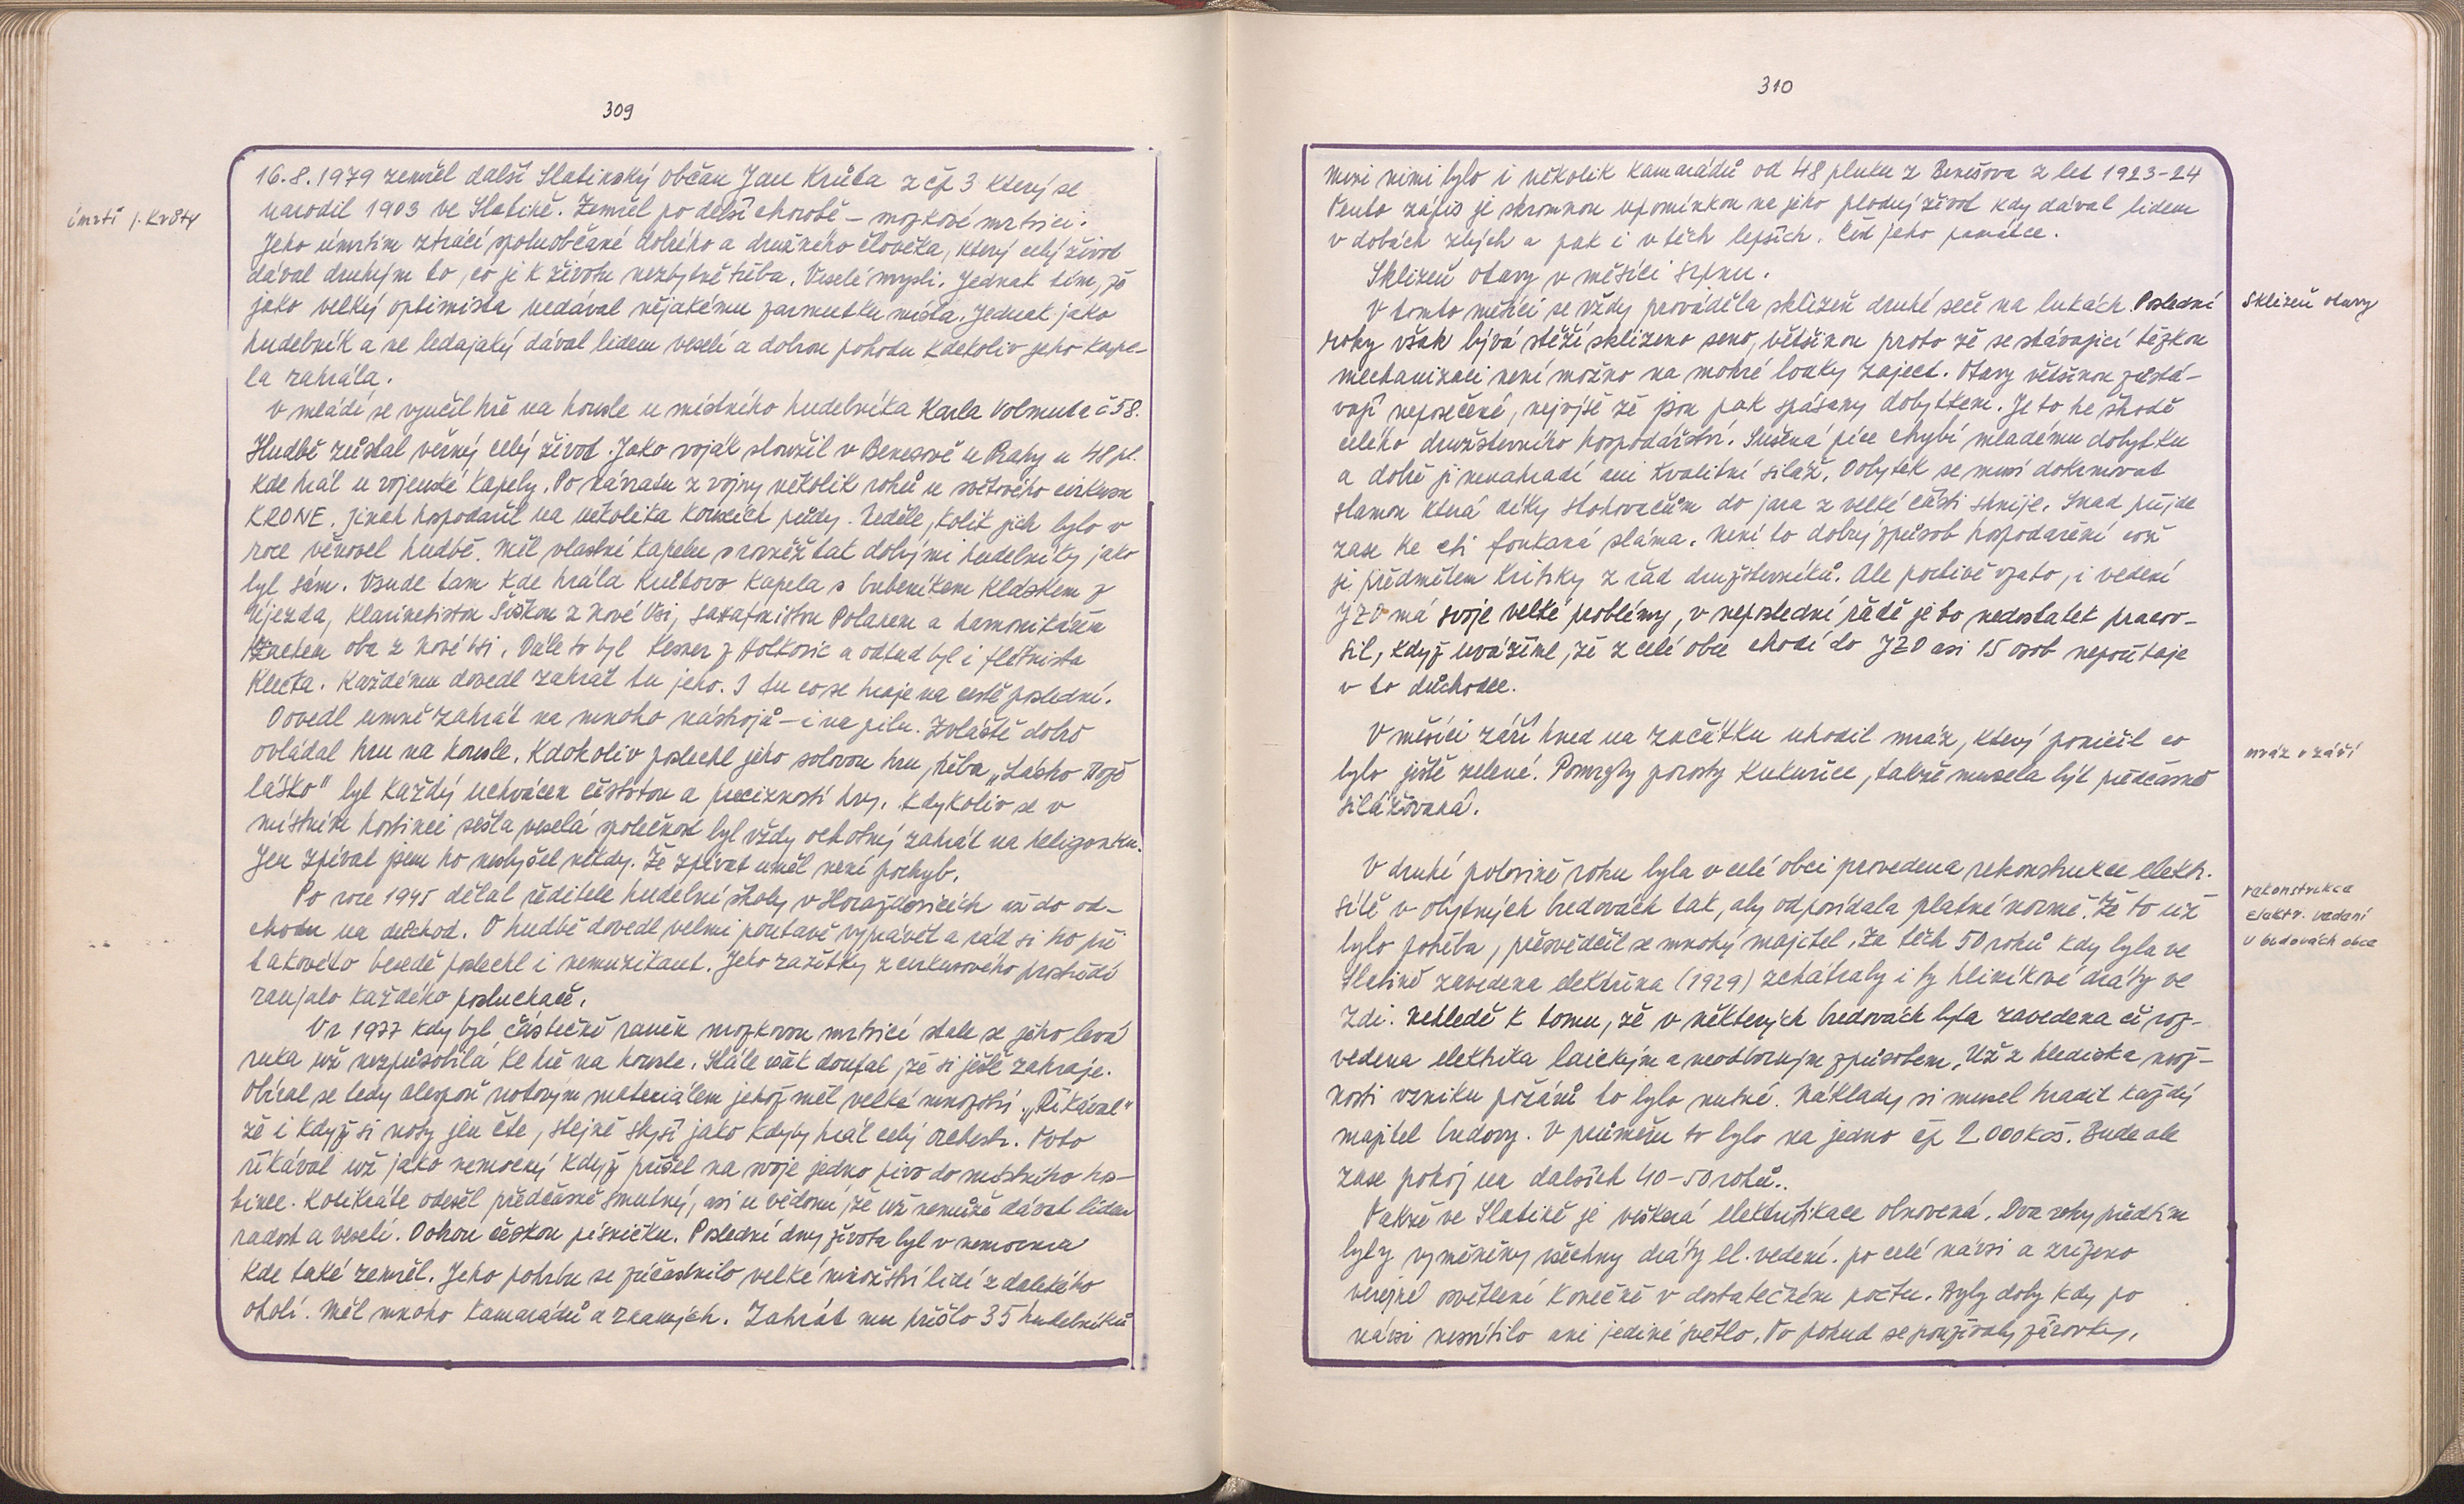 309
úmrtí J. Krůty
16.8.1979 zemřel další Slatinský občan Jan Krůta z čp 3 který se
narodil 1903 ve Slatině. Zemřel po delší chorobě - mozkové mrtvici.
Jeho úmrtím ztrácí spoluobčané dobrého a družného člověka, který celý život
dával druhým to, co je k životu nezbytně třeba. Veselé mysli. Jednak tím, že
jako velký optimista nedával nějakému zarmutku místa. Jednak jako
hudebník a ne ledajaký dával lidem veselí a dobrou pohodu kdekoliv jeho kape-
la zahrála.
V mládí se vyučil hře na housle u místního hudebníka Karla Volmuta č 58.
Hudbě zůstal věrný celý život. Jako voják sloužil v Benešově u Prahy u 48 pl.
kde hrál u vojenské kapely. Po návratu z vojny několik roků u světového cirkusu
KRONE. Jinak hospodařil na několika korcích půdy. Neděle, kolik jich bylo v
roce věnoval hudbě. Měl vlastní kapelu s rovněž tak dobrými hudebníky jako
byl sám. Všude tam kde hrála Krůtova kapela s bubeníkem Kláskem z
Újezda, klarinetistou Šiškou z Nové Vsi, saxafonistou Polanem a harmonikářem
oba z Nové Vsi. Dále to byl Kesner z Holkovic a odtud byl i fletnista
Klecka. Každému dovedl zahrát tu jeho. I tu co se hraje na cestě poslední.
Dovedl umně zahrát na mnoho nástrojů - i na pilu. Zvláště dobře
ovládal hru na housle. Kdokoliv poslechl jeho solovou hru, třeba „Lásko Bože
lásko" byl každý uchvácen čistotou a preciznosti hry. Kdykoliv se v
místním hostinci sešla veselá společnost byl vždy ochotný zahrát na heligonku.
Jen zpívat jsem ho neslyšel nikdy. Že zpívat uměl není pochyb.
Po roce 1945 dělal ředitele hudební školy v Horažďovicích až do od-
chodu na důchod. O hudbě dovedl velmi poutavě vyprávět a rád si ho při
takovéto besedě poslechl i nemuzikant. Jeho zažitky z cirkusového prostředí
zaujalo každého posluchače.
V r 1977 kdy byl částečně raněn mozkovou mrtvicí stala se jeho levá
ruka už nezpůsobilá ke hře na housle. Stále však doufal, že si ještě zahraje.
Obíral se tedy alespoň notovým materiálem jehož měl velké množství. „Říkával"
že i když si noty jen čte, stejně slyší jako kdyby hrál celý orchestr. Toto
říkával už jako nemocný když přišel na svoje jedno pivo do místního hos-
tince. Kolikráte odešel předčasně smutný, asi u vědomí, že už nemůže dávat lidem
radost a veselí. Dobrou českou písničku. Poslední dny života byl v nemocnici
kde také zemřel. Jeho pohřbu se zúčastnilo velké množství lidí z dalekého
okolí. Měl mnoho kamarádů a známých. Zahrát mu přišlo 35 hudebníků
310
Mezi nimi bylo i několik kamarádů od 48 pluku z Benešova z let 1923-24
Tento zápis je skromnou upomínkou na jeho plodný život kdy dával lidem
v dobách zlých a pak i v těch lepších. Čest jeho památce.
Sklizeň otavy v měsíci srpnu.
V tomto měsíci se vždy prováděla sklizeň druhé seče na lukách. Poslední
Sklizeň otavy
roky však bývá stěží sklizeno seno, většinou proto že se stávající těžkou
mechanizací není možno na mokré louky zaject. Otavy většinou zůstá-
vají neposečené, nejvýše že jsou pak spásany dobytkem. Je to ke škodě
celého družstevního hospodářství. Sušená píce chybí mladému dobytku
a dobře ji nenahradí ani kvalitní siláž. Dobytek se musí dokrmovat
slamou která díky stohovačům do jara z velké části shnije. Snad přijde
zase ke cti foukaná sláma. Není to dobrý způsob hospodaření což
je předmětem kritiky z řad družstevníků. Ale poctivě vzato, i vedení
JZD má svoje velké problémy, v neposlední řádě je to nedostatek pracov-
sil, když uvážíme, že z celé obce chodí do JZD asi 15 osob nepočítaje
v to důchodce.
V měsíci září hned na začátku uhodil mráz, který poničil co
mráz v září
bylo ještě zelené. Pomrzly porosty kukuřice, takže musela být předčasně
silážovaná.
V druhé polovině roku byla v celé obci provedena rekonstrukce elektr.
rekonstrukce
elektr. vedení
v budovách obce
sítě v obytných budovách tak, aby odpovídala platné normě. Že to už
bylo potřeba, přesvědčil se mnohý majitel. Za těch 50 roků kdy byla ve
Slatině zavedena elektřina (1929) zchátraly i ty hliníkové dráty ve
zdi. Nehledě k tomu, že v některých budovách byla zavedena či roz-
vedena elektrika laickým a neodborným způsobem. Už z hlediska mož-
nosti vzniku požárů to bylo nutné. Náklady si musel hradit každý
majitel budovy. V průměru to bylo na jedno čp 2.000 kčs. Bude ale
zase pokoj na dalších 40-50 roků.
Takže ve Slatině je veškerá elektrifikace obnovená. Dva roky předtím
byly vyměněny všechny dráty el. vedení. po celé návsi a zřízeno
veřejné osvětlení konečně v dostatečném počtu. Byly doby kdy po
návsi nesvítilo ani jediné světlo. To pokud se používaly žárovky.